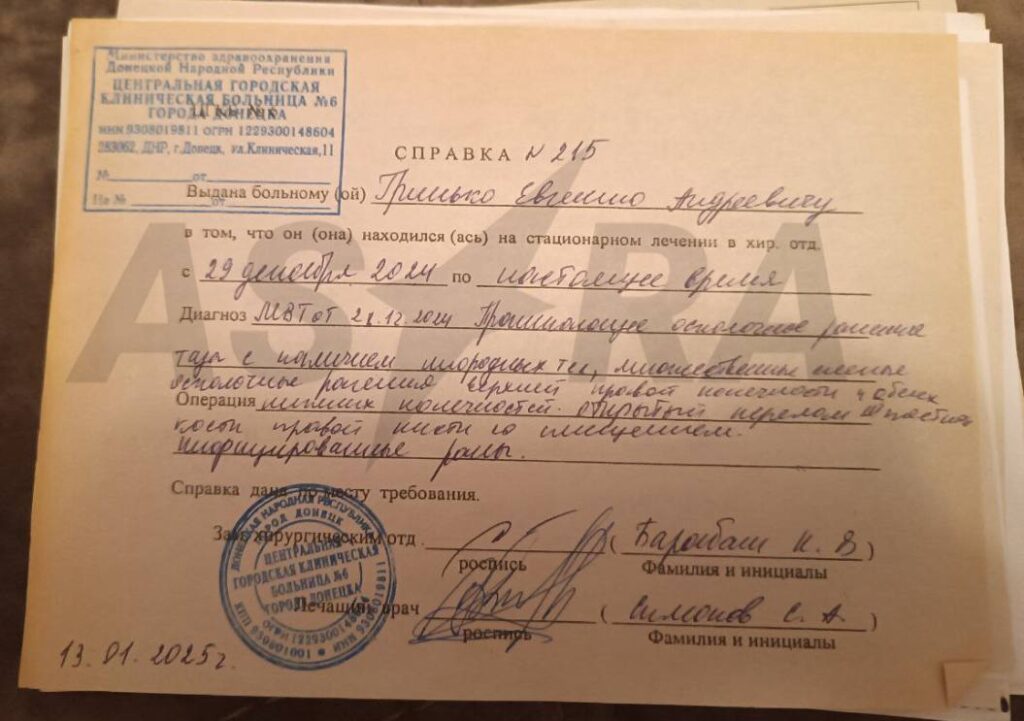 Министерство здравоохранения
Донецкой Народной Республики
ЦЕНТРАЛЬНАЯ ГОРОДСКАЯ
КЛИНИЧЕСКАЯ БОЛЬНИЦА №6
ГОРОДА ДОНЕЦКА
ИНН 9308019811 ОГРН 1229300148604
283062, ДНР, г.Донецк, ул.Клиническая,11
№ от
На № от
СПРАВКА N 215
Выдана больному (ой) Гринько Евгению Андреевичу
в том, что он (она) находился (ась) на стационарном лечении в хир. отд.
с 29 декабря 2024 по настоящее время
Диагноз МВТ от 28.12.2024 Проникающее осколочное ранение
таза с наличием инородных тел, множественные
осколочные ранения верхней правой конечности и обеих
Операция нижних конечностей. Открытый перелом III пястной
кости правой кисти со смещением.
Инфицированные раны.
Справка дана по месту требования.
Зав. хирургическим отд. ( Барабаш Н. В )
роспись Фамилия и инициалы
Лечащий врач ( Симонов С. А. )
роспись Фамилия и инициалы
13.01.2025г.
ДОНЕЦКАЯ НАРОДНАЯ РЕСПУБЛИКА
ГОРОД ДОНЕЦК
ЦЕНТРАЛЬНАЯ
ГОРОДСКАЯ КЛИНИЧЕСКАЯ
БОЛЬНИЦА №6
ГОРОДА ДОНЕЦКА
ОГРН 1229300148604
ИНН 9308019811
КПП 930801001
ASTRA